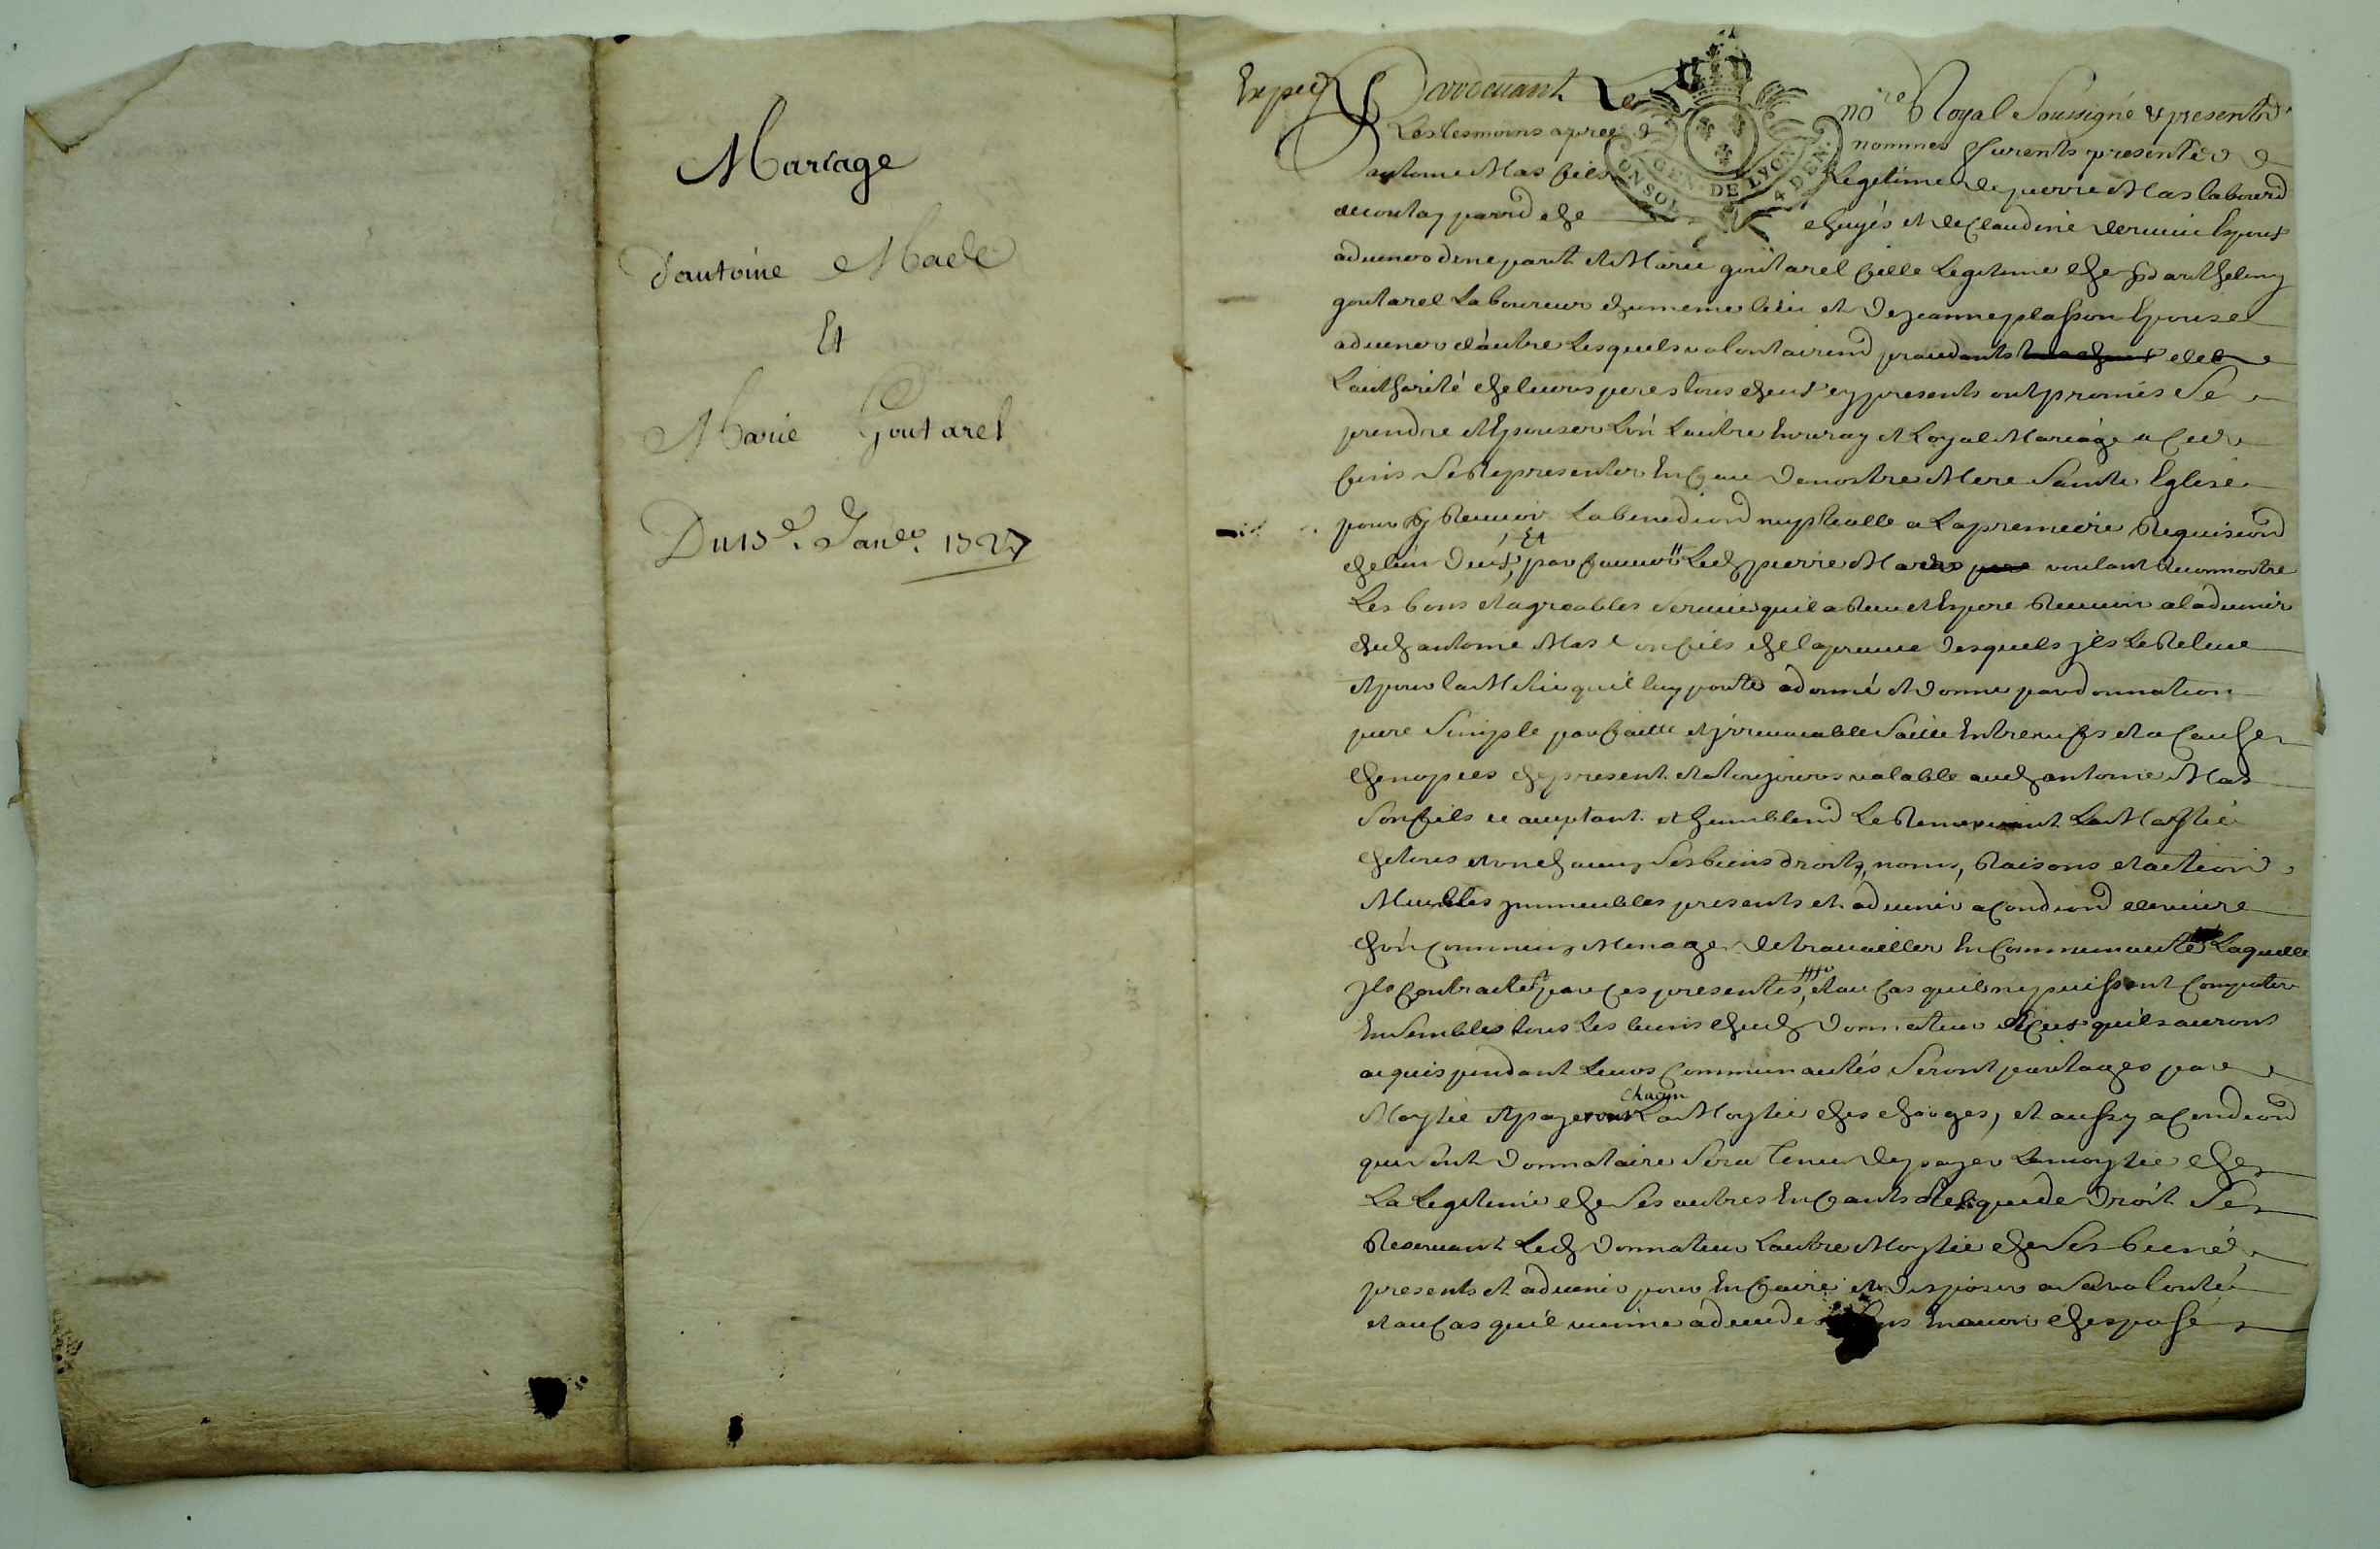 Mariage
d'antoine Made
Et
Marie Goutarel
Du 15e. Janer. 1727
Expeé Pardeuant Le nore Royal Soussigné & presents
Les tesmoins apres nommes furents presentes
antoine Mas fils Legitime de pierre Mas labourd
de parrd de et de Claudine Espoux
aduenir dune part et Marie goutarel fille Legitime de Barthelemy
goutarel Laboureur du meme lieu et de jeanne plasson Epouse
aduenir d'autre Lesquels volontairemd procedants de
L'authorité de leurs peres tous deux cy presents ont promis Se
prendre et Epouser L'un L'autre En vray et Loyal Mariage a Ces
fins Se Representer En face de nostre Mere Sainte Eglise
pour y Receuoir La benediond nuptialle a La premiere Requisiond
de l'un deux, Et par faueur Led pierre Mas voulant Reconnoitre
Les bons et agreables seruices quil a Receu et Espere Receuoir a l'aduenir
dud antoine Mas son fils de la preuue desquels jls Le Releue
et pour la Mitié quil luy porte a donné et donne par donnation
pure Simple parfaitte et jrreuocable faitte Entre vifs et a Cause
de nopces de present et a toujours valable aud antoine Mas
Son fils ce acceptant et humblemd Le Remerciant La Moytié
de tous et un chacuns Ses biens droits, noms, Raisons et actions
Meubles jmmeubles presents et aduenir a Condiond de viure
d'un Commun Menage de trauailler En Communauté Laquelle
jls Contractet par Ces presentes, et au Cas quil ny puissent Compater
Ensembles tous Les biens dud donnateur et Ceux quils auront
acquis pendant Leurs Communautés Seront partages par
Moytié et payeront chacun La Moytié des charges, et aussy a Condiond
que Donnataire Sera tenu de payer La moytié de
La Legitime de Ses autres Enfants telle que de droit Se
Reseruant Led Donnateur L'autre Moytié de Ses biens
presents et aduenir pour En faire et Disposer a Sa volonté
et au Cas quil vienne a deceder Sans En auoir disposé
GEN. DE LYON
4 DEN.